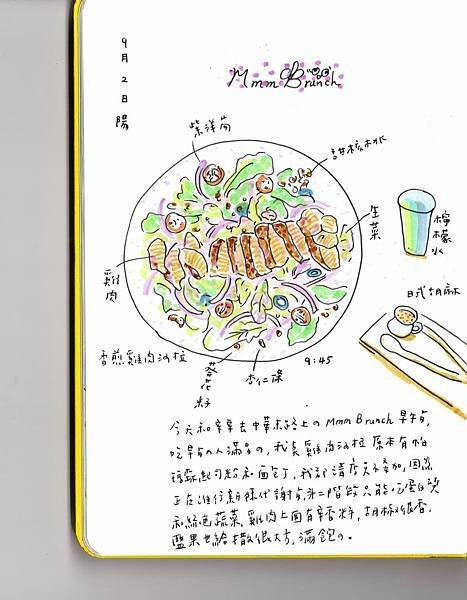 9月2日 陽
Mmm Brunch
紫洋蔥
甜核桃
生菜
檸檬水
雞肉
日式胡麻
香煎雞肉沙拉
杏仁
9:45
今天和 去中華路上の Mmm Brunch 早午餐,
吃早餐の人滿多の, 我 雞肉沙拉 原本有帕
瑪森起司粉和面包丁, 我都請店 不加, 因為
正在進行新陳代謝 第二階段只能吃蛋白質
和綠色蔬菜, 雞肉上面有辛香料, 胡麻 很香,
堅果也給 很大方, 滿飽の。